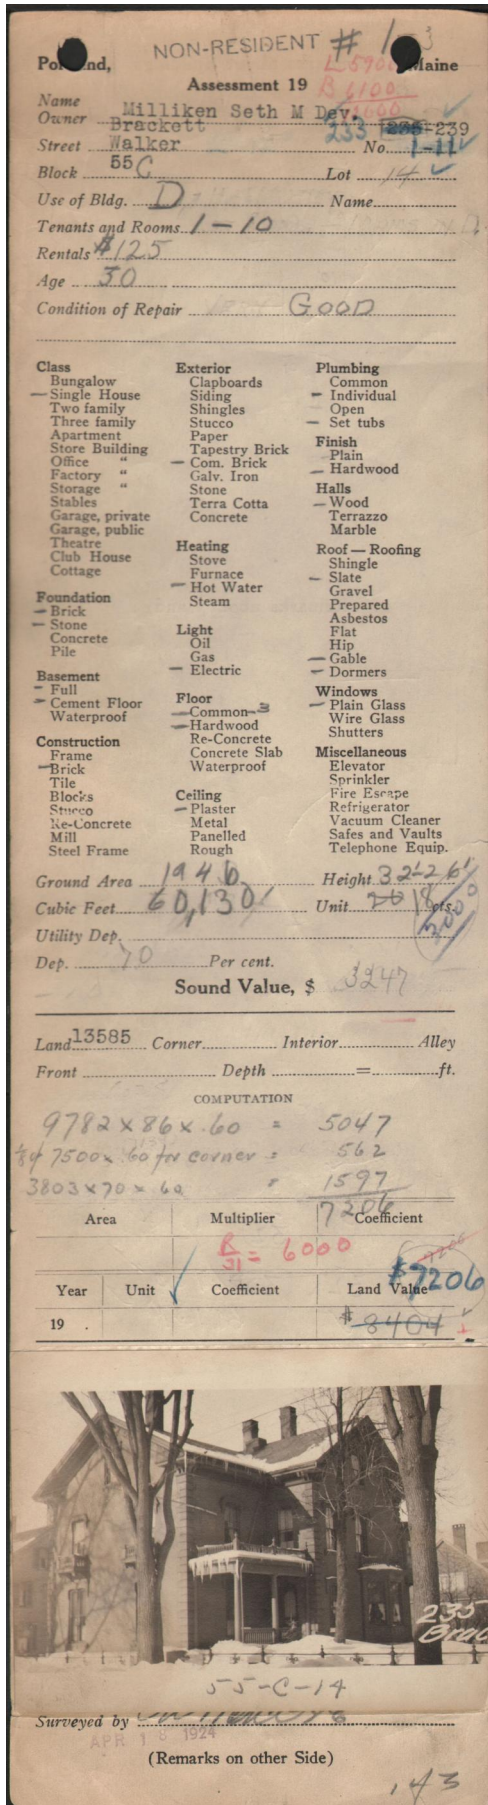 NON-RESIDENT # 1
Maine
L 5900
B 6100
Assessment 19
Name
Owner Milliken Seth M Dev.
Brackett 233 235-239
Street Walker No. 1-11
Block 55 C Lot 14
Use of Bldg. D Name
Tenants and Rooms 1-10
Rentals $125
Age 30
Condition of Repair GOOD
Class
Bungalow
— Single House
Two family
Three family
Apartment
Store Building
Office "
Factory "
Storage "
Stables
Garage, private
Garage, public
Theatre
Club House
Cottage
Foundation
— Brick
— Stone
Concrete
Pile
Basement
— Full
— Cement Floor
Waterproof
Construction
Frame
— Brick
Tile
Blocks
Stucco
Re-Concrete
Mill
Steel Frame
Exterior
Clapboards
Siding
Shingles
Stucco
Paper
Tapestry Brick
— Com. Brick
Galv. Iron
Stone
Terra Cotta
Concrete
Heating
Stove
Furnace
— Hot Water
Steam
Light
Oil
Gas
— Electric
Floor
— Common-3
— Hardwood
Re-Concrete
Concrete Slab
Waterproof
Ceiling
— Plaster
Metal
Panelled
Rough
Plumbing
Common
— Individual
Open
— Set tubs
Finish
Plain
— Hardwood
Halls
— Wood
Terrazzo
Marble
Roof — Roofing
Shingle
— Slate
Gravel
Prepared
Asbestos
Flat
Hip
— Gable
— Dormers
Windows
— Plain Glass
Wire Glass
Shutters
Miscellaneous
Elevator
Sprinkler
Fire Escape
Refrigerator
Vacuum Cleaner
Safes and Vaults
Telephone Equip.
Ground Area 1946 Height 32'-26'
Cubic Feet 60,130 Unit 20 18 cts.
Utility Dep.
Dep. 70 Per cent.
Sound Value, $ 3247
Land 13585 Corner Interior Alley
Front Depth = ft.
COMPUTATION
9782 x 86 x .60 = 5047
1/8 of 7500 x .60 for corner = 562
3803 x 70 x 60 " 1597
7206
Area Multiplier Coefficient
R/31 = 6000
$7206
Year Unit Coefficient Land Value
19 . $8404
235
55-C-14
Surveyed by
APR 1 8 1924
(Remarks on other Side)
143